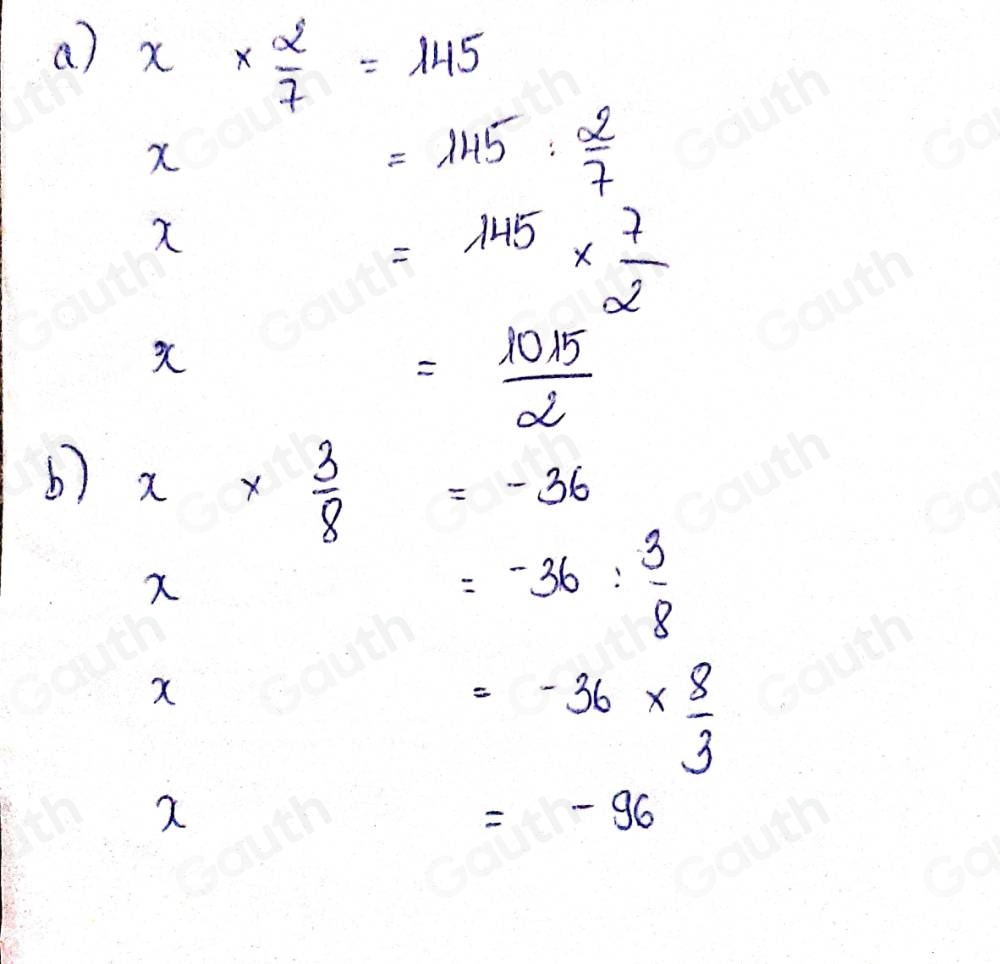 a) x × 2/7 = 145
x = 145 : 2/7
x = 145 × 7/2
x = 1015/2
b) x × 3/8 = -36
x = -36 : 3/8
x = -36 × 8/3
x = -96